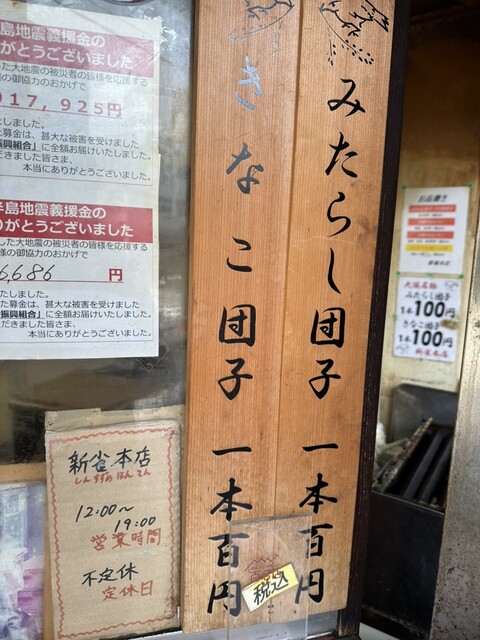 島地震義援金の
がとうございました。
た大地震の被災者の皆様を応援する
様の御協力のおかげで
017,925円
しました。
た募金は、甚大な被害を受けました
振興組合」に全額お届けいたしました。
だきました皆さま、
本当にありがとうございました。
半島地震義援金の
りがとうございました。
した大地震の被災者の皆様を応援する
皆様の御協力のおかげで
6,686 円
たしました。
た募金は、甚大な被害を受けました
振興組合」に全額お届けいたしました。
ただきました皆さま、
本当にありがとうございました。
みたらし団子 一本百円
きなこ団子 一本百円
税込
新雀本店
しんすずめほんてん
12:00〜
19:00
営業時間
不定休
定休日
大須名物
みたらし団子
1本100円
きなこ団子
1本100円
新雀本店